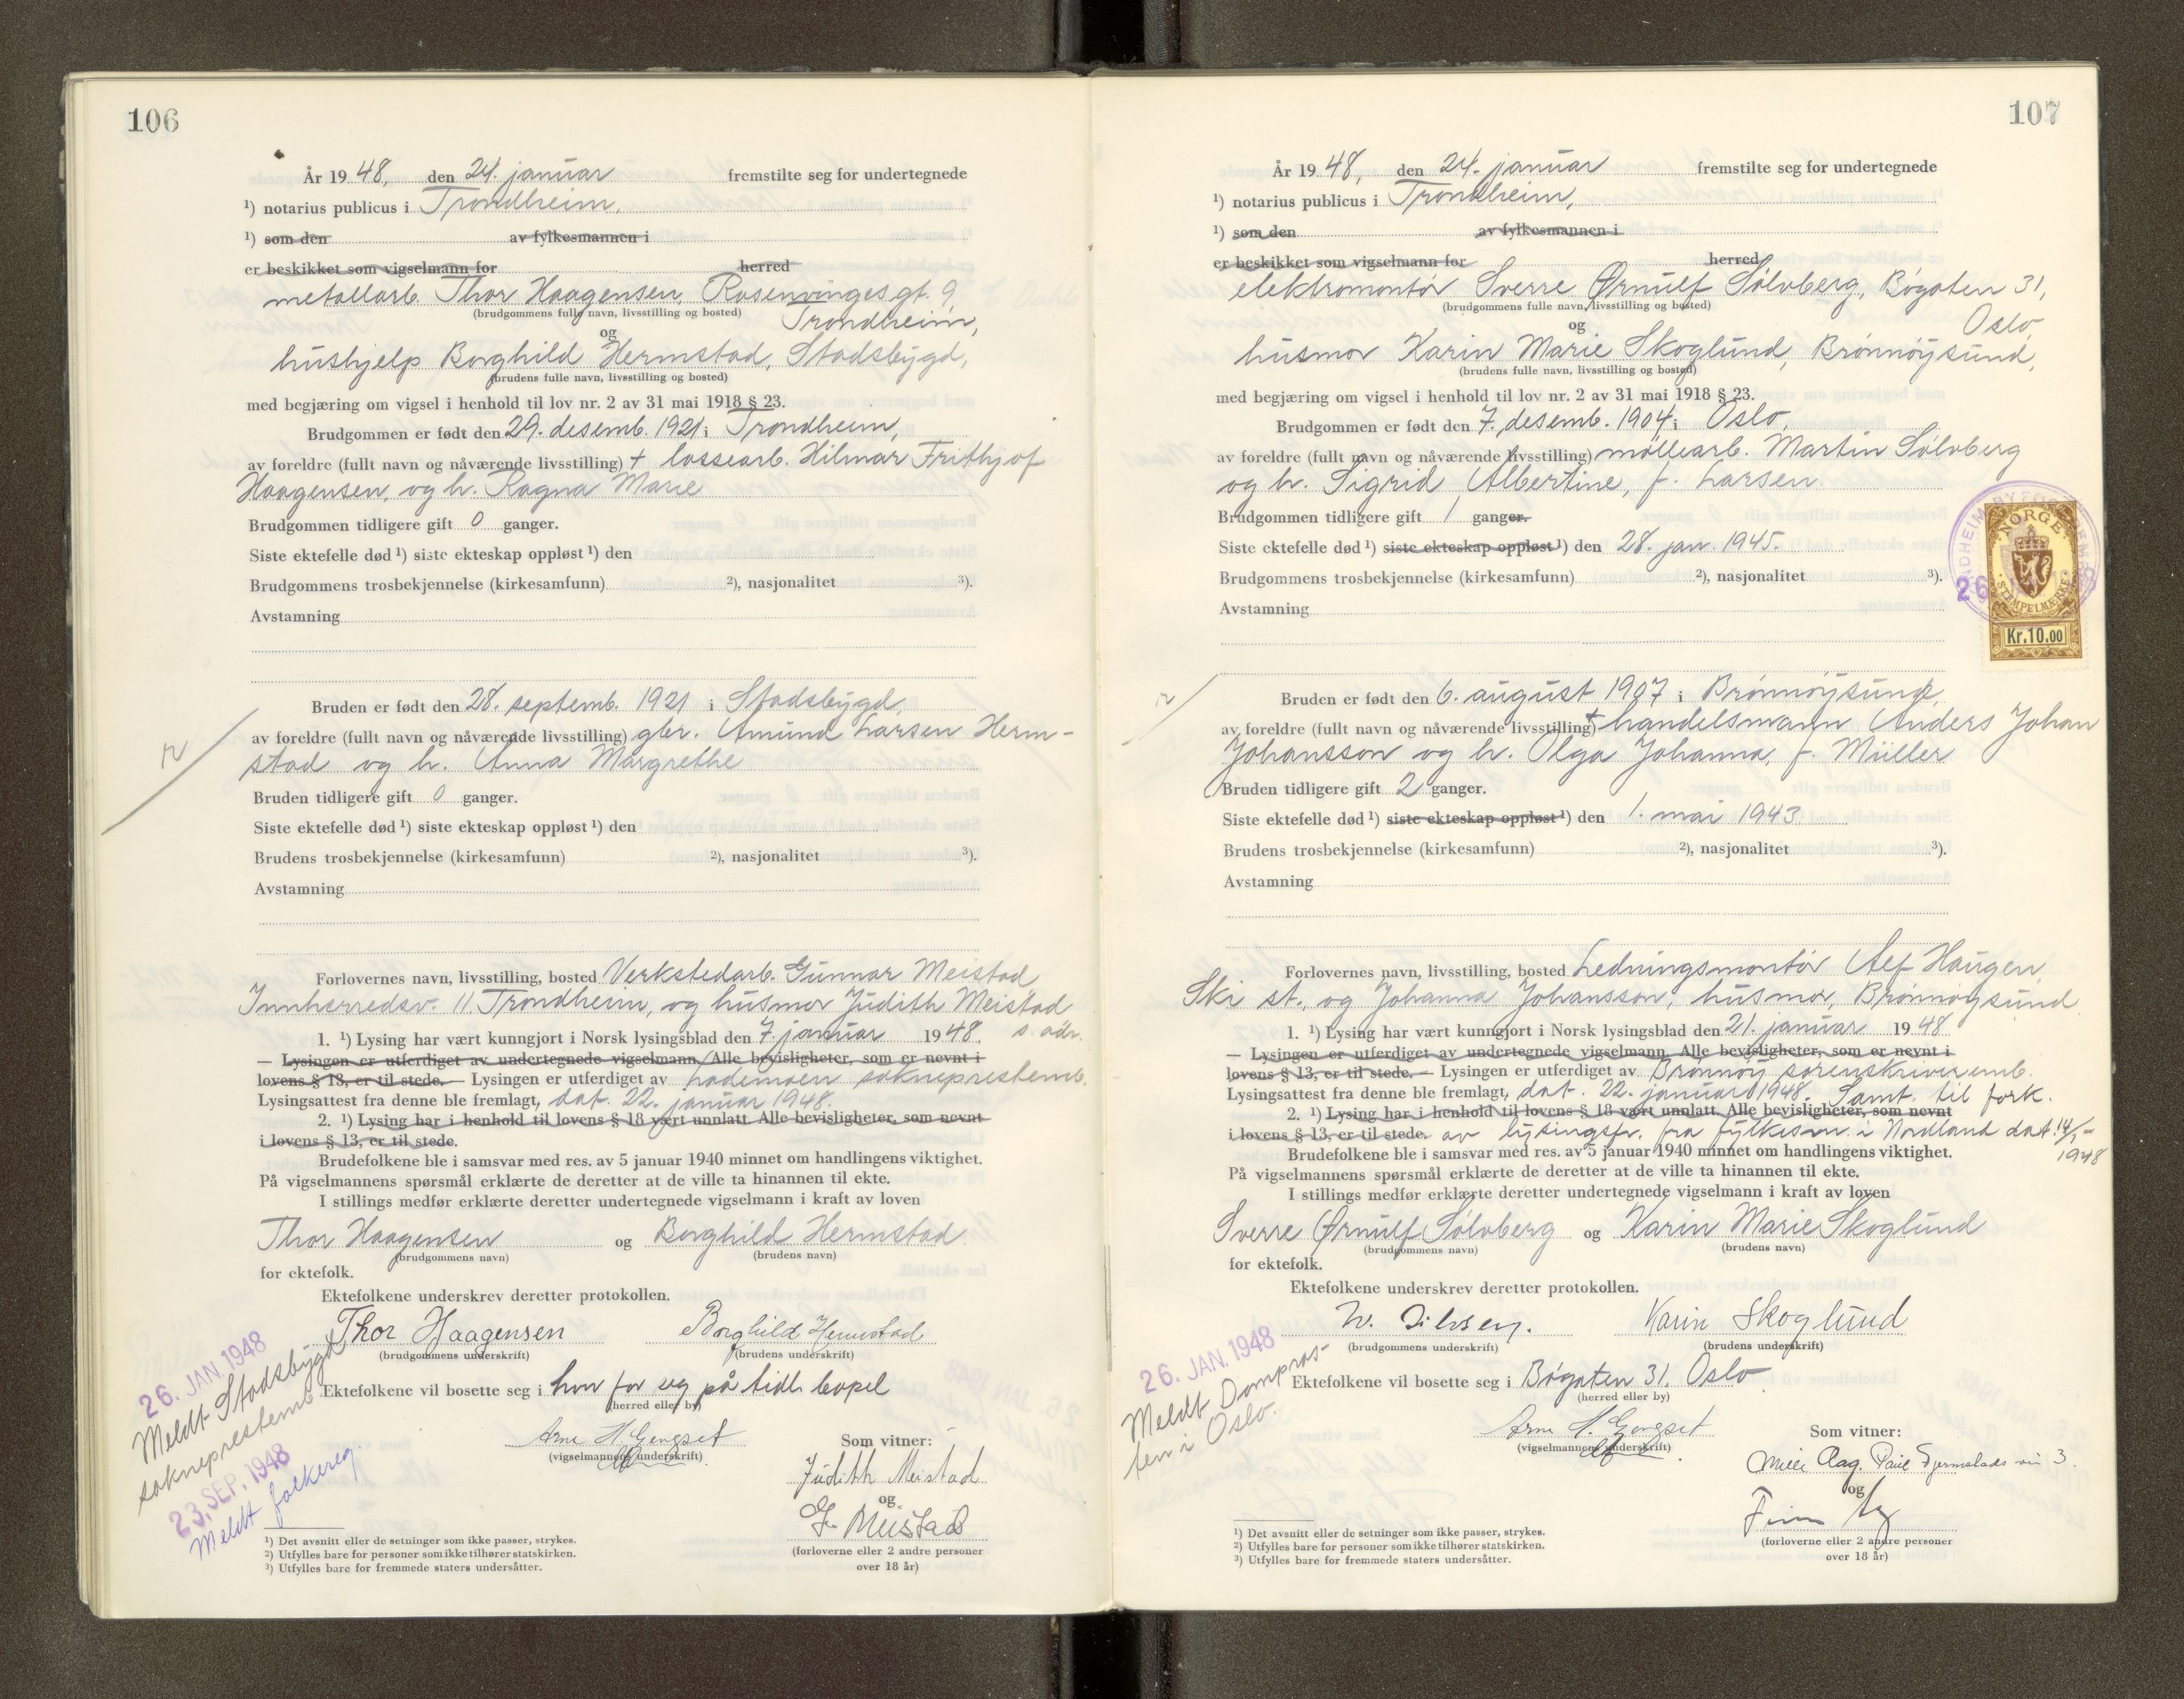 106
År 1948, den 24. januar fremstilte seg for undertegnede
¹) notarius publicus i Trondheim,
¹) som den av fylkesmannen i
er beskikket som vigselmann for herred
metallarb. Thor Haagensen, Rosenvinges gt. 9,
(brudgommens fulle navn, livsstilling og bosted) Trondheim,
og
hushjelp Borghild Hermstad, Stadsbygd,
(brudens fulle navn, livsstilling og bosted)
med begjæring om vigsel i henhold til lov nr. 2 av 31 mai 1918 § 23.
Brudgommen er født den 29. desemb. 1921 i Trondheim,
av foreldre (fullt navn og nåværende livsstilling) + lossearb. Hilmar Frithjof
Haagensen, og h. Ragna Marie
Brudgommen tidligere gift 0 ganger.
Siste ektefelle død ¹) siste ekteskap oppløst ¹) den
Brudgommens trosbekjennelse (kirkesamfunn) ²), nasjonalitet ³).
Avstamning
Bruden er født den 28. septemb. 1921 i Stadsbygd,
av foreldre (fullt navn og nåværende livsstilling) gbr. Amund Larsen Herm-
stad og h. Anna Margrethe
Bruden tidligere gift 0 ganger.
Siste ektefelle død ¹) siste ekteskap oppløst ¹) den
Brudens trosbekjennelse (kirkesamfunn) ²), nasjonalitet ³).
Avstamning
Forlovernes navn, livsstilling, bosted Verkstedarb. Gunnar Meistad
Innherredsv. 11 Trondheim, og husmor Judith Meistad
1. ¹) Lysing har vært kunngjort i Norsk lysingsblad den 7. januar 1948. s. adr.
— Lysingen er utferdiget av undertegnede vigselmann. Alle bevisligheter, som er nevnt i
lovens § 13, er til stede. — Lysingen er utferdiget av Lademoen sokneprestemb.
Lysingsattest fra denne ble fremlagt, dat. 22. januar 1948.
2. ¹) Lysing har i henhold til lovens § 18 vært unnlatt. Alle bevisligheter, som nevnt
i lovens § 13, er til stede.
Brudefolkene ble i samsvar med res. av 5 januar 1940 minnet om handlingens viktighet.
På vigselmannens spørsmål erklærte de deretter at de ville ta hinannen til ekte.
I stillings medfør erklærte deretter undertegnede vigselmann i kraft av loven
Thor Haagensen og Borghild Hermstad
(brudgommens navn) (brudens navn)
for ektefolk.
Ektefolkene underskrev deretter protokollen.
Thor Haagensen Borghild Hermstad
(brudgommens underskrift) (brudens underskrift)
Ektefolkene vil bosette seg i hver for seg på tidl. bopel
(herred eller by)
26. JAN. 1948
Meldt Stadsbygd
sokneprestemb.
23. SEP. 1948
Meldt folkereg.
Arne H. Gengset
(vigselmannens underskrift)
Som vitner:
Judith Meistad
og
G. Meistad
(forloverne eller 2 andre personer
over 18 år)
¹) Det avsnitt eller de setninger som ikke passer, strykes.
²) Utfylles bare for personer som ikke tilhører statskirken.
³) Utfylles bare for fremmede staters undersåtter.
107
År 1948, den 24. januar fremstilte seg for undertegnede
¹) notarius publicus i Trondheim,
¹) som den av fylkesmannen i
er beskikket som vigselmann for herred
elektromontør Sverre Ørnulf Sølvberg, Bøgaten 31,
(brudgommens fulle navn, livsstilling og bosted) Oslo,
og
husmor Karin Marie Skoglund, Brønnøysund,
(brudens fulle navn, livsstilling og bosted)
med begjæring om vigsel i henhold til lov nr. 2 av 31 mai 1918 § 23.
Brudgommen er født den 7. desemb. 1904 i Oslo,
av foreldre (fullt navn og nåværende livsstilling) møllearb. Martin Sølvberg
og h. Sigrid Albertine, f. Larsen.
Brudgommen tidligere gift 1 ganger.
Siste ektefelle død ¹) siste ekteskap oppløst ¹) den 28. jan. 1945.
Brudgommens trosbekjennelse (kirkesamfunn) ²), nasjonalitet ³).
Avstamning
NORGE
STEMPELMERKE
Kr.10.00
26
Bruden er født den 6. august 1907 i Brønnøysund,
av foreldre (fullt navn og nåværende livsstilling) + handelsmann Anders Johan
Johansson og h. Olga Johanna, f. Müller
Bruden tidligere gift 2 ganger.
Siste ektefelle død ¹) siste ekteskap oppløst ¹) den 1. mai 1943.
Brudens trosbekjennelse (kirkesamfunn) ²), nasjonalitet ³).
Avstamning
Forlovernes navn, livsstilling, bosted Ledningsmontør Alf Haugen,
Ski st., og Johanna Johansson, husmor, Brønnøysund
1. ¹) Lysing har vært kunngjort i Norsk lysingsblad den 21. januar 1948
— Lysingen er utferdiget av undertegnede vigselmann. Alle bevisligheter, som er nevnt i
lovens § 13, er til stede. — Lysingen er utferdiget av Brønnøy sorenskriveremb.
Lysingsattest fra denne ble fremlagt, dat. 22. januar 1948. Samt. til fork.
2. ¹) Lysing har i henhold til lovens § 18 vært unnlatt. Alle bevisligheter, som nevnt
i lovens § 13, er til stede. av lysingsfr. fra fylkesm. i Nordland dat. 14/1-
1948
Brudefolkene ble i samsvar med res. av 5 januar 1940 minnet om handlingens viktighet.
På vigselmannens spørsmål erklærte de deretter at de ville ta hinannen til ekte.
I stillings medfør erklærte deretter undertegnede vigselmann i kraft av loven
Sverre Ørnulf Sølvberg og Karin Marie Skoglund
(brudgommens navn) (brudens navn)
for ektefolk.
Ektefolkene underskrev deretter protokollen.
Karin Skoglund
(brudgommens underskrift) (brudens underskrift)
Ektefolkene vil bosette seg i Bøgaten 31. Oslo
(herred eller by)
26. JAN. 1948
Meldt Dompros-
ten i Oslo.
Arne H. Gengset
(vigselmannens underskrift)
Som vitner:
og
Finn
(forloverne eller 2 andre personer
over 18 år)
¹) Det avsnitt eller de setninger som ikke passer, strykes.
²) Utfylles bare for personer som ikke tilhører statskirken.
³) Utfylles bare for fremmede staters undersåtter.